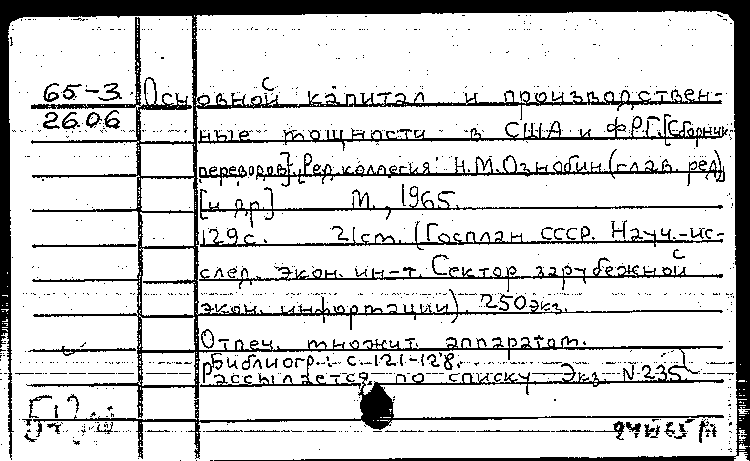 65-3 Основной капитал и производствен-
2606
ные мощности в США и ФРГ. [Сборник
переводов]. [Ред. коллегия: Н.М. Ознобин (глав. ред)
[и др.] М., 1965.
129с. 21см. (Госплан СССР. Науч.-ис-
след. экон. ин-т. Сектор зарубежной
экон. информации). 250 экз.
Отпеч. множит. аппаратом.
Библиогр.: с. 121-128.
Рассылается по списку. Экз. N 235